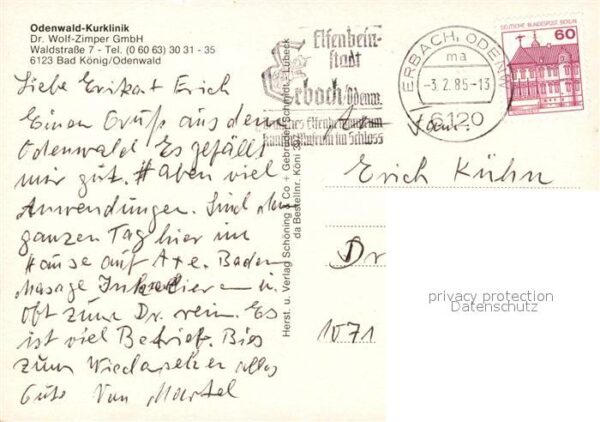 Odenwald-Kurklinik
Dr. Wolf-Zimper GmbH
Waldstraße 7 - Tel. (0 60 63) 30 31 - 35
6123 Bad König/Odenwald
Liebe Erika + Erich
Einen Gruß aus dem
Odenwald Es gefällt
mir gut. Haben viel
Anwendungen. Sind den
ganzen Tag hier im
Hause auf Axe. Baden
Masage Inhalieren u
oft zum Dr. rein. Es
ist viel Betrieb. Bies
zum Wiedersehen alles
Gute Von Martel
Herst. u. Verlag Schöning & Co + Gebrüder Schmidt, Lübeck
da Bestellnr. Köni 39
Elfenbein-
stadt
Erbach/Odenw.
Deutsches Elfenbeinmuseum
im Schloss
ERBACH, ODENW
ma
-3.2.85-13
6120
DEUTSCHE BUNDESPOST BERLIN
60
Fam.
Erich Kühn
Dr
1071
privacy protection
Datenschutz